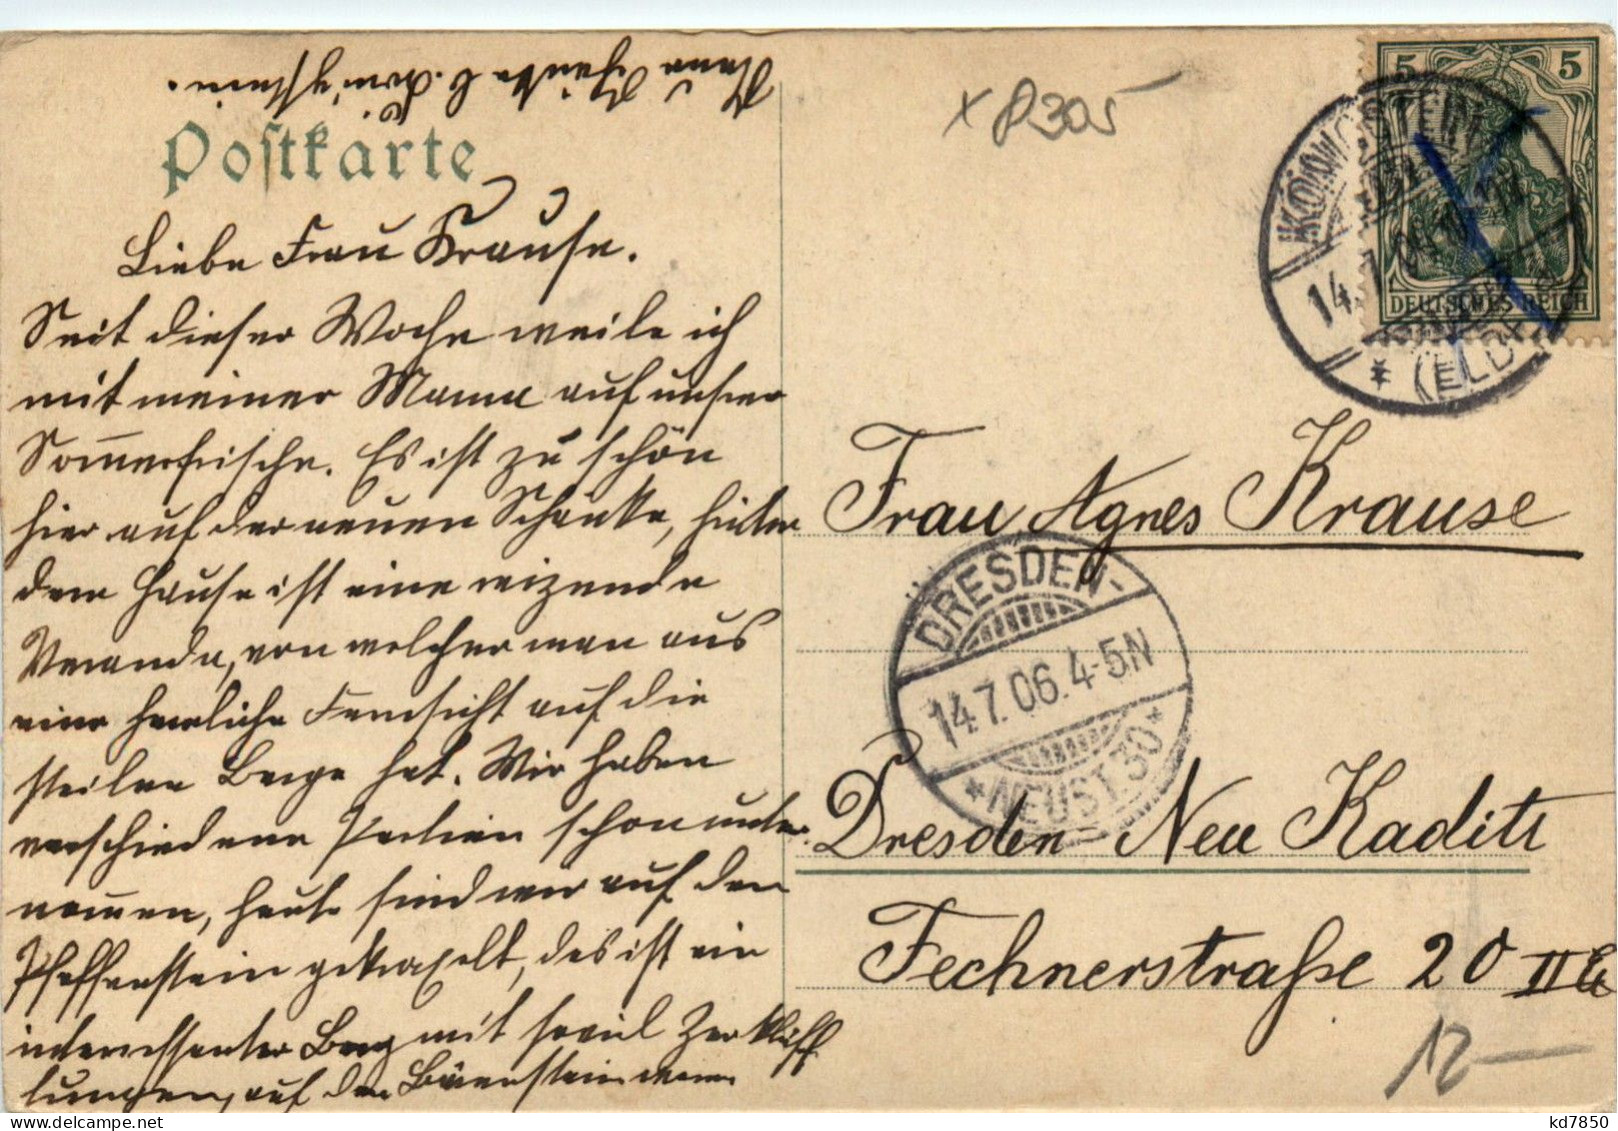 Neue Schänke b. Königstein.
Postkarte
× P305
5 5
DEUTSCHES REICH
KÖNIGSTEIN
14. 7.
(ELBE)
Liebe Frau Krause.
Seit dieser Woche weile ich
mit meiner Mama auf unsrer
Sommerfrische. Es ist zu schön
hier auf der neuen Schänke, hinter
dem Hause ist eine reizende
Veranda, von welcher man aus
eine herrliche Fernsicht auf die
steilen Berge hat. Wir haben
verschiedene Partien schon unter-
nommen, heute sind wir auf den
Pfaffenstein gekraxelt, das ist ein
interessanter Berg mit soviel Zerklüf-
tungen, auf den Bärenstein
Frau Agnes Krause
DRESDEN-
14.7.06.4-5N
*NEUST.30*
Dresden-Neu Kaditz
Fechnerstraße 20 II
12 —
kd7850